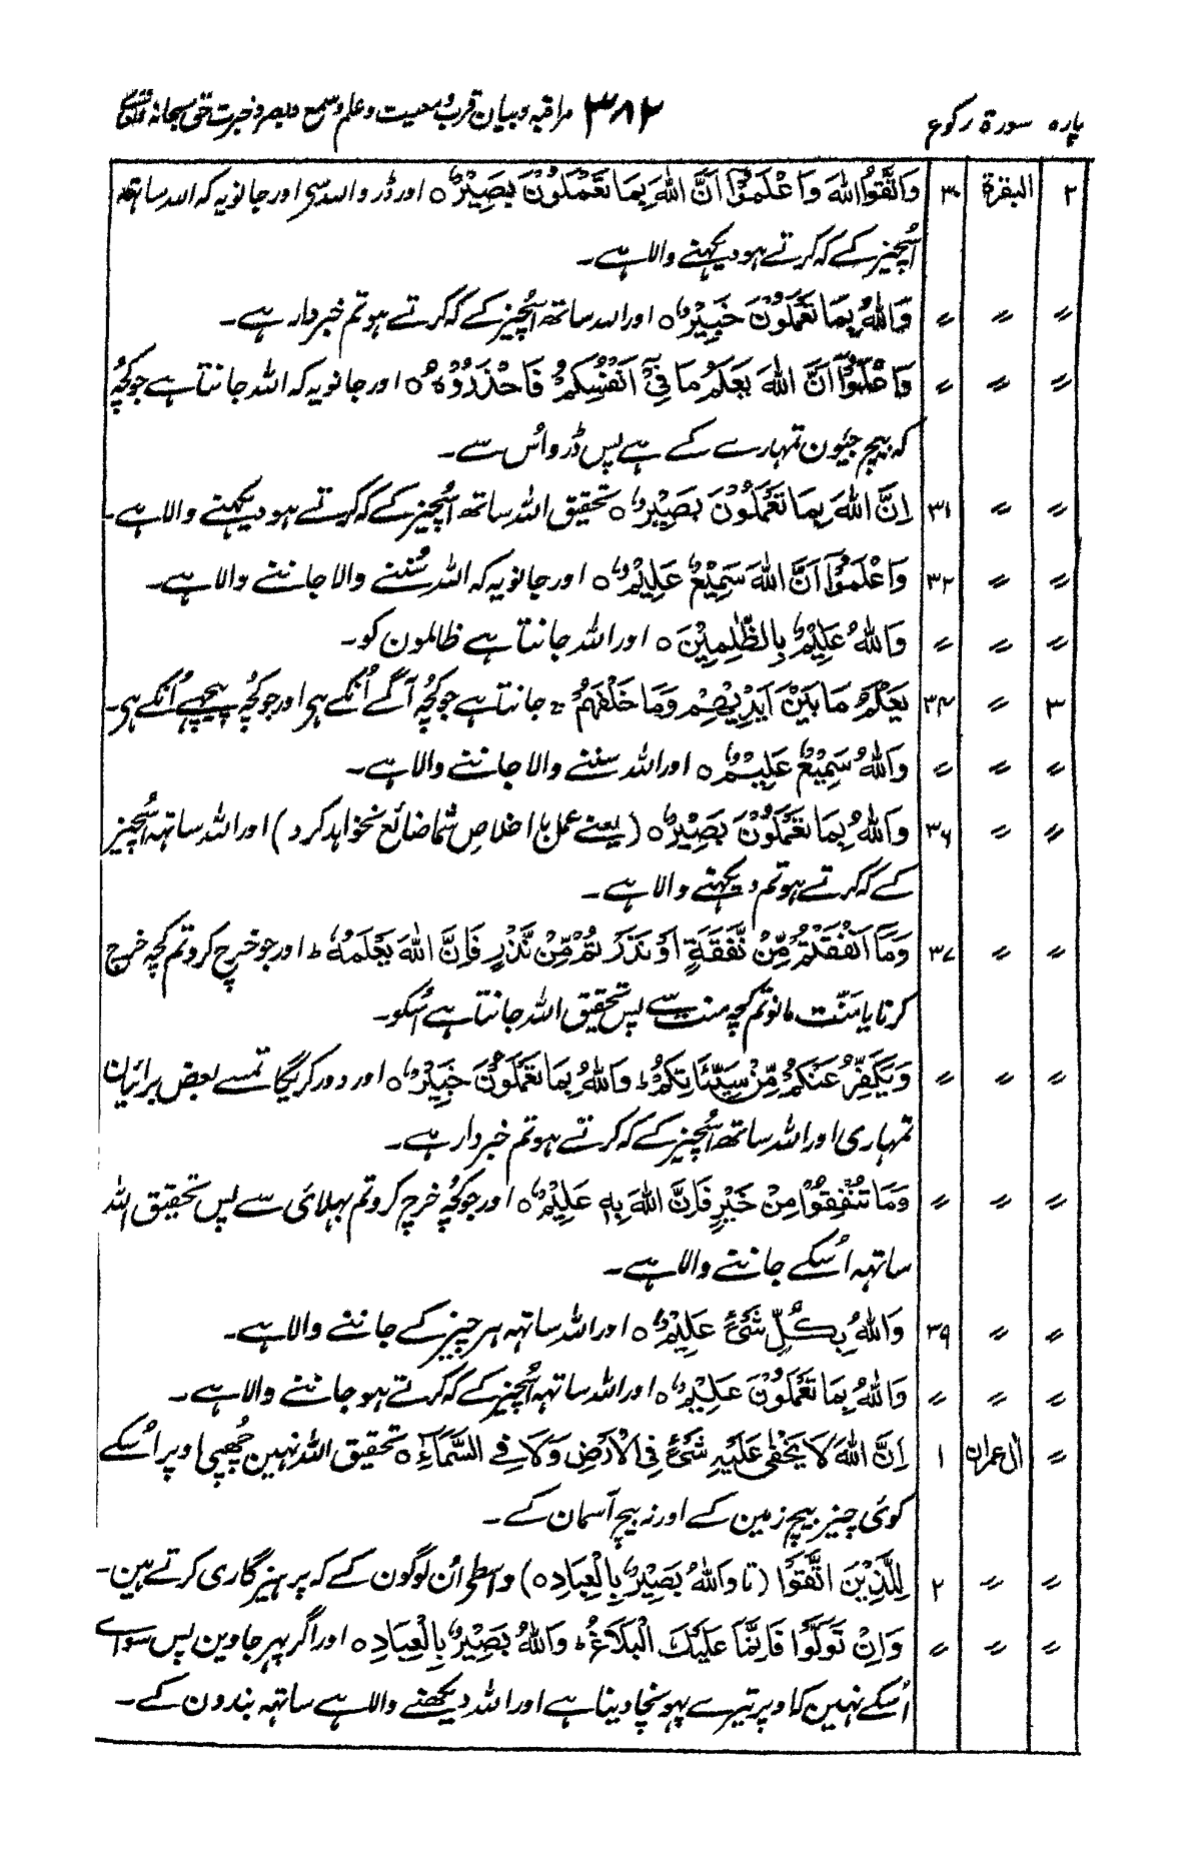 پارہ سورۃ رکوع ۳۸۲ مراقبہ و بیان قرب و معیت و علم و سمع و بصر و خبرت حق سبحانہ و تعالٰے
۲ البقرۃ ۳۰ وَاتَّقُوا اللّٰہَ وَاعْلَمُوْٓا اَنَّ اللّٰہَ بِمَا تَعْمَلُوْنَ بَصِیْرٌ ○ اور ڈرو اللہ سی اور جانو یہ کہ اللہ ساتھ
اُسچیز کے کہ کرتے ہو دیکہنے والا ہے۔
〃 〃 〃 وَاللّٰہُ بِمَا تَعْمَلُوْنَ خَبِیْرٌ ○ اور اللہ ساتھ اُسچیز کے کہ کرتے ہو تم خبردار ہے۔
〃 〃 〃 وَاعْلَمُوْٓا اَنَّ اللّٰہَ یَعْلَمُ مَا فِیْٓ اَنْفُسِکُمْ فَاحْذَرُوْہُ ○ اور جانو یہ کہ اللہ جانتا ہے جو کچُہ
کہ بیچ جیُون تمہارے کے ہے پس ڈرو اُس سے۔
〃 〃 ۳۱ اِنَّ اللّٰہَ بِمَا تَعْمَلُوْنَ بَصِیْرٌ ○ تحقیق اللہ ساتھ اُسچیز کے کہ کرتے ہو دیکہنے والا ہے۔
〃 〃 ۳۲ وَاعْلَمُوْٓا اَنَّ اللّٰہَ سَمِیْعٌ عَلِیْمٌ ○ اور جانو یہ کہ اللہ سُننے والا جاننے والا ہے۔
〃 〃 〃 وَاللّٰہُ عَلِیْمٌ بِالظّٰلِمِیْنَ ○ اور اللہ جانتا ہے ظالمون کو۔
۳ 〃 ۳۴ یَعْلَمُ مَا بَیْنَ اَیْدِیْھِمْ وَمَا خَلْفَھُمْ ۚ جانتا ہے جو کچُہ آگے اُنکے ہی اور جو کچُہ پیچھے اُنکے ہی۔
〃 〃 〃 وَاللّٰہُ سَمِیْعٌ عَلِیْمٌ ○ اور اللہ سننے والا جاننے والا ہے۔
〃 〃 ۳۶ وَاللّٰہُ بِمَا تَعْمَلُوْنَ بَصِیْرٌ ○ (یعنے عمل با اخلاص شما ضائع نخواہد کرد) اور اللہ ساتہہ اُسچیز
کے کہ کرتے ہو تم دیکہنے والا ہے۔
〃 〃 ۳۷ وَمَآ اَنْفَقْتُمْ مِّنْ نَّفَقَۃٍ اَوْ نَذَرْتُمْ مِّنْ نَّذْرٍ فَاِنَّ اللّٰہَ یَعْلَمُہٗ ط اور جو خرچ کرو تم کچہ خرچ
کرنا یا مَنّت مانو تم کچہ منت سے پس تحقیق اللہ جانتا ہے اُسکو۔
〃 〃 〃 وَیُکَفِّرُ عَنْکُمْ مِّنْ سَیِّئَاتِکُمْ ط وَاللّٰہُ بِمَا تَعْمَلُوْنَ خَبِیْرٌ ○ اور دور کریگا تمسے بعض برائیان
تمہاری اور اللہ ساتھ اُسچیز کے کہ کرتے ہو تم خبردار ہے۔
〃 〃 〃 وَمَا تُنْفِقُوْا مِنْ خَیْرٍ فَاِنَّ اللّٰہَ بِہٖ عَلِیْمٌ ○ اور جو کچُہ خرچ کرو تم بہلائی سے پس تحقیق اللہ
ساتہہ اُسکے جاننے والا ہے۔
〃 〃 ۳۹ وَاللّٰہُ بِکُلِّ شَیْءٍ عَلِیْمٌ ○ اور اللہ ساتہہ ہر چیز کے جاننے والا ہے۔
〃 〃 〃 وَاللّٰہُ بِمَا تَعْمَلُوْنَ عَلِیْمٌ ○ اور اللہ ساتہہ اُسچیز کے کہ کرتے ہو جاننے والا ہے۔
〃 اٰل عمران ۱ اِنَّ اللّٰہَ لَا یَخْفٰی عَلَیْہِ شَیْءٌ فِی الْاَرْضِ وَلَا فِی السَّمَآءِ ○ تحقیق اللہ نہین چُھپی اوپر اُسکے
کوئی چیز بیچ زمین کے اور نہ بیچ آسمان کے۔
〃 〃 ۲ لِلَّذِیْنَ اتَّقَوْا (تا وَاللّٰہُ بَصِیْرٌ بِالْعِبَادِ ○) واسطی اُن لوگون کے کہ پرہیزگاری کرتے ہین۔
〃 〃 〃 وَاِنْ تَوَلَّوْا فَاِنَّمَا عَلَیْکَ الْبَلَاغُ ط وَاللّٰہُ بَصِیْرٌ بِالْعِبَادِ ○ اور اگر پہر جاوین پس سوائے
اُسکے نہین کہ اوپر تیرے پہونچا دینا ہے اور اللہ دیکھنے والا ہے ساتہہ بندون کے۔